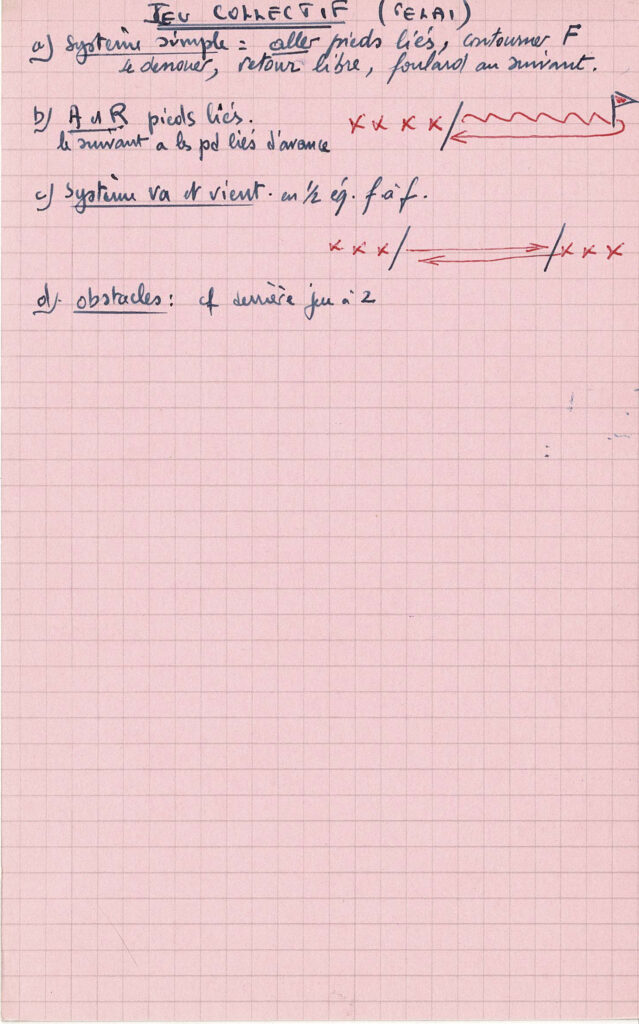 JEU COLLECTIF (RELAI)
a) Système simple = aller pieds liés, contourner F
se dénouer, retour libre, foulard au suivant.
b) A et R pieds liés.
le suivant a les pd liés d'avance
c) Système va et vient. en 1/2 éq. f à f.
d). obstacles : cf derrière jeu à 2